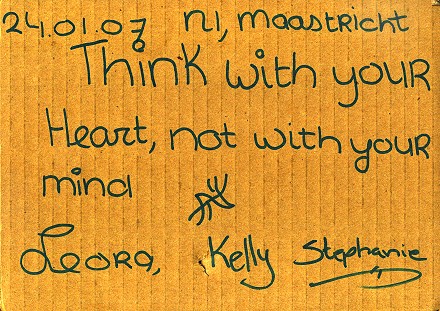 24.01.07 Nl, Maastricht
Think with your
Heart, not with your
mind
Leora, Kelly Stephanie